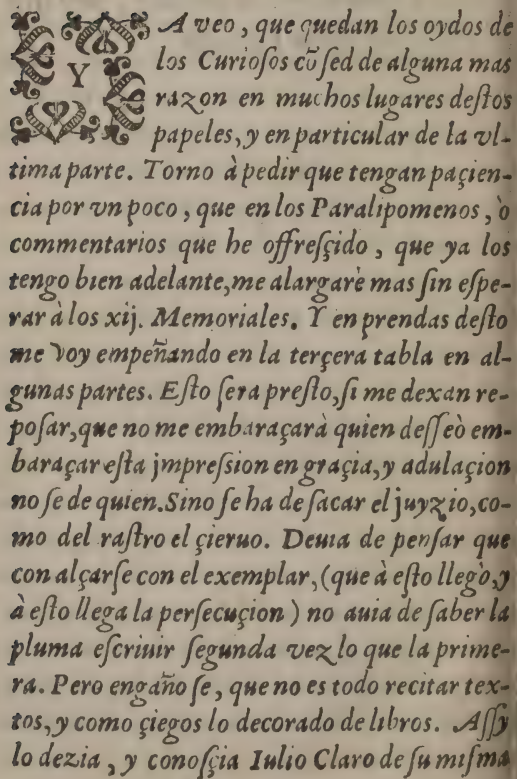 YA veo, que quedan los oydos de
los Curiosos cõ sed de alguna mas
razon en muchos lugares destos
papeles, y en particular de la vl-
tima parte. Torno à pedir que tengan paçien-
cia por vn poco, que en los Paralipomenos, ò
commentarios que he offresçido, que ya los
tengo bien adelante, me alargarè mas sin espe-
rar à los xij. Memoriales. Y en prendas desto
me voy empeñando en la terçera tabla en al-
gunas partes. Esto sera presto, si me dexan re-
posar, que no me embaraçarà quien desseò em-
baraçar esta jmpression en graçia, y adulaçion
no se de quien. Sino se ha de sacar el juyzio, co-
mo del rastro el çieruo. Deuia de pensar que
con alçarse con el exemplar, (que à esto llegò, y
à esto llega la persecuçion) no auia de saber la
pluma escriuir segunda vez lo que la prime-
ra. Pero engaño se, que no es todo recitar tex-
tos, y como çiegos lo decorado de libros. Assy
lo dezia, y conosçia Iulio Claro de su misma